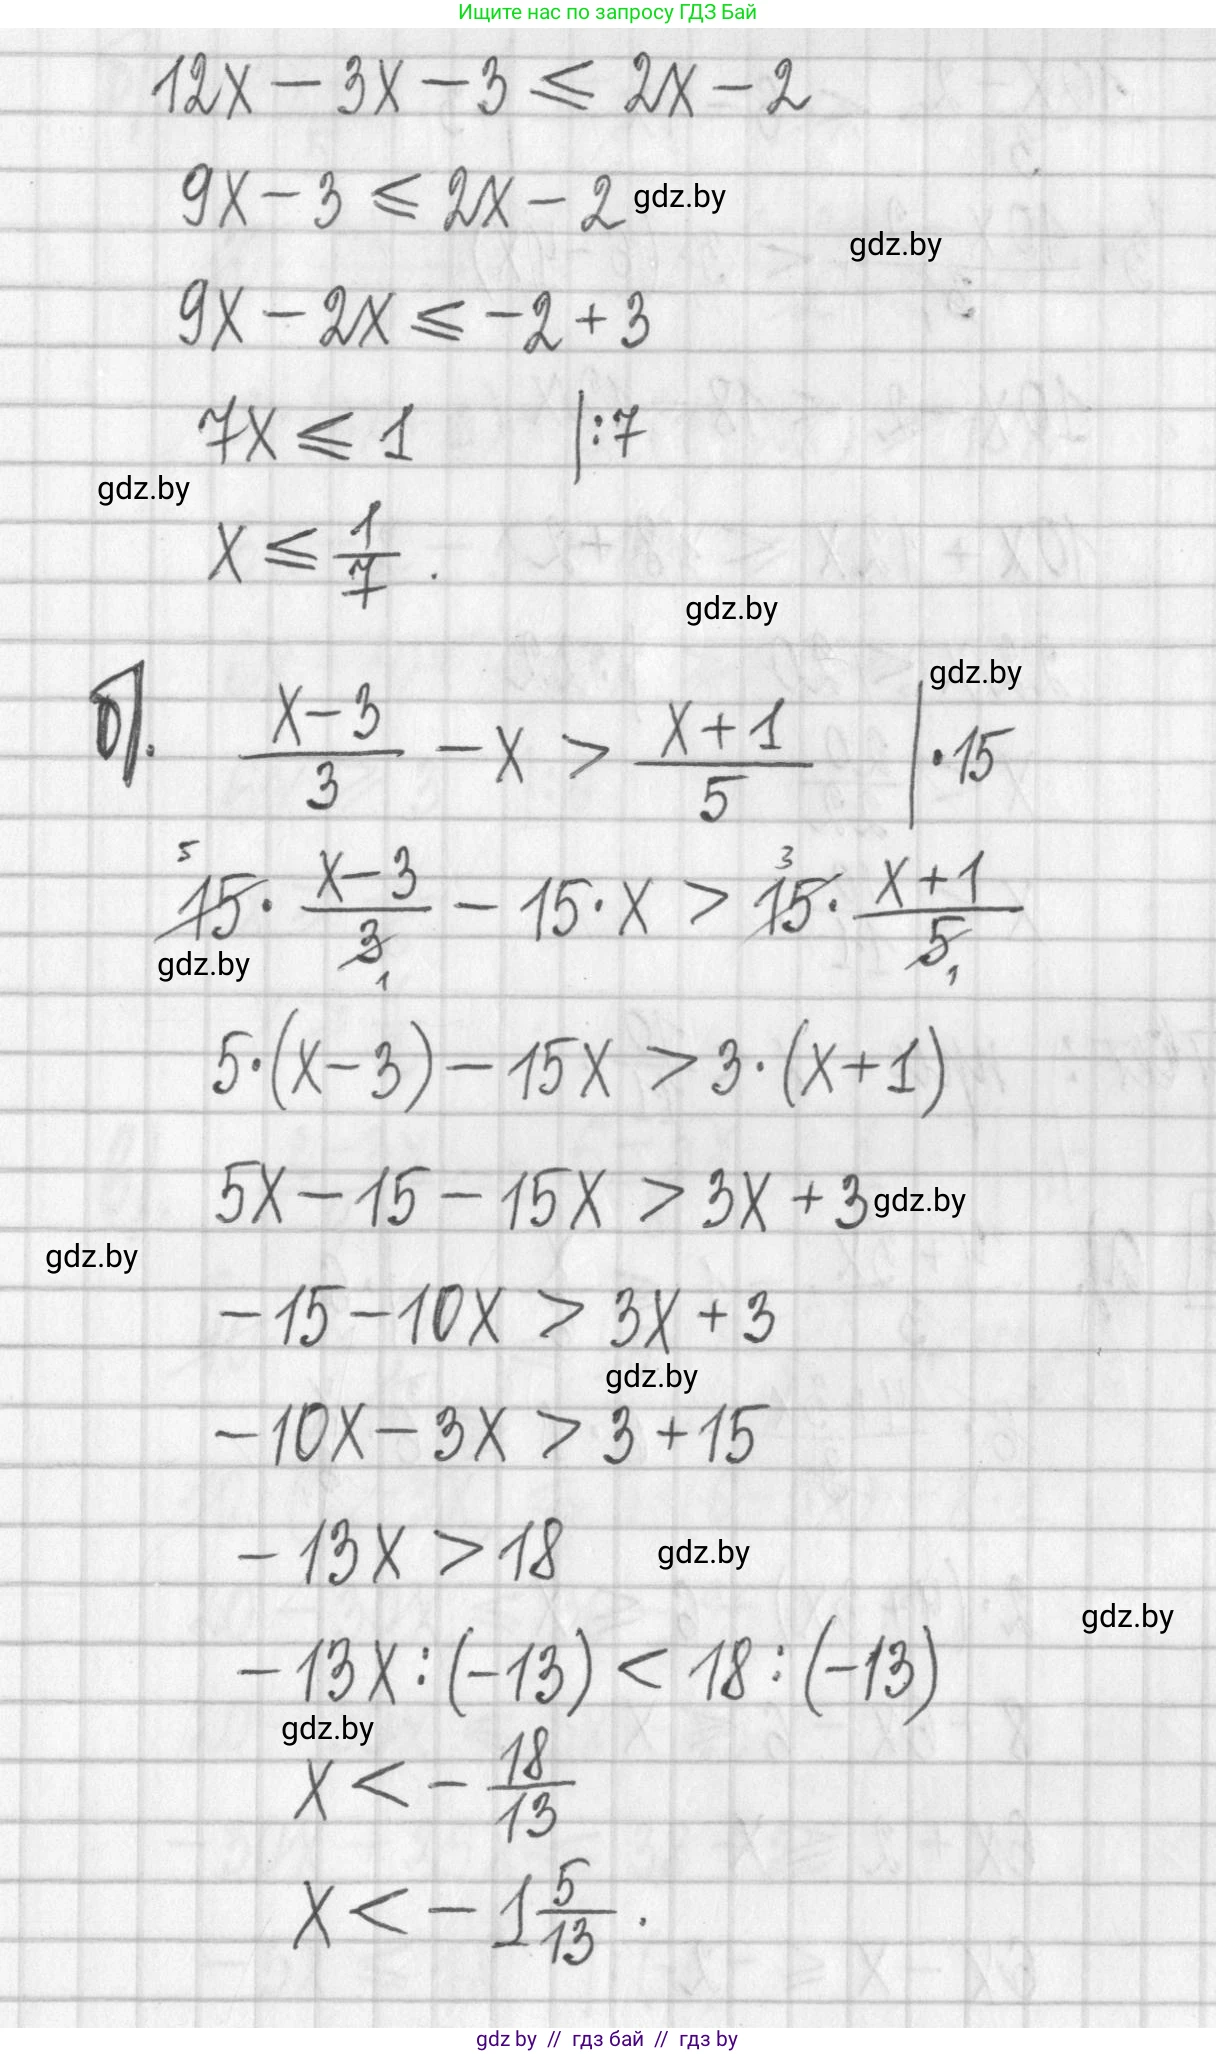 Ищите нас по запросу ГДЗ Бай
12x - 3x - 3 ⩽ 2x - 2
9x - 3 ⩽ 2x - 2 gdz.by
gdz.by
9x - 2x ⩽ -2 + 3
7x ⩽ 1 | :7
gdz.by
x ⩽ 1/7 .
gdz.by
gdz.by
б). (x-3)/3 - x > (x+1)/5 | ·15
15⁵ · (x-3)/3₁ - 15·x > 15³ · (x+1)/5₁
gdz.by
5·(x-3) - 15x > 3·(x+1)
5x - 15 - 15x > 3x + 3 gdz.by
gdz.by
-15 - 10x > 3x + 3
gdz.by
-10x - 3x > 3 + 15
-13x > 18 gdz.by
gdz.by
-13x : (-13) < 18 : (-13)
gdz.by
x < - 18/13
x < - 1 5/13 .
gdz by // гдз бай // гдз by